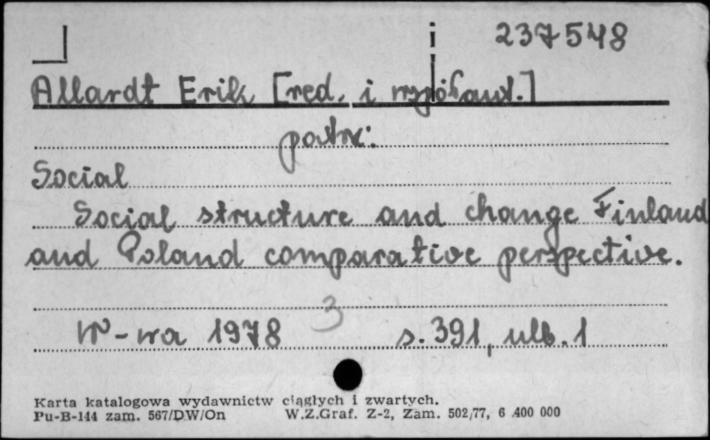 237548
Allardt Erik [red. i współaut.]
patrz:
Social
Social structure and change Finland
and Poland comparative perspective.
3
W-wa 1978 s. 391, ulb. 1
Karta katalogowa wydawnictw ciągłych i zwartych.
Pu-B-144 zam. 567/DW/On W.Z.Graf. Z-2, Zam. 502/77, 6 400 000